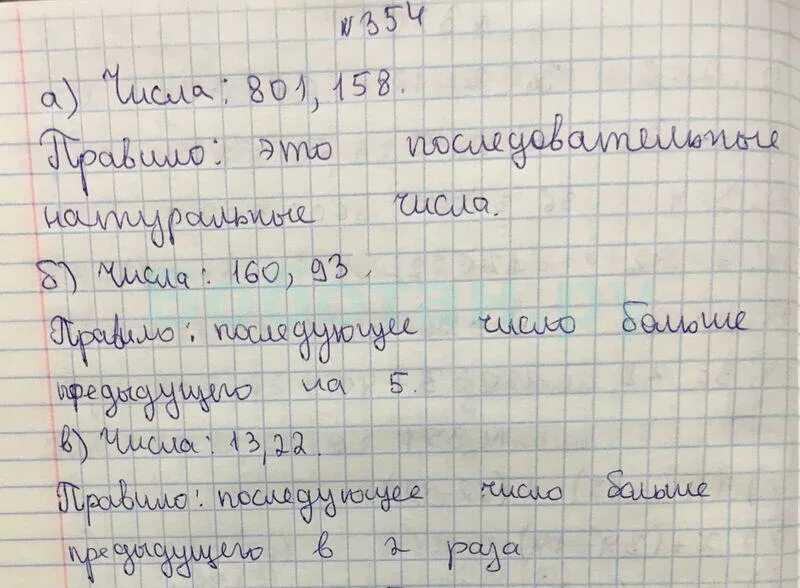 №354
а) Числа: 801, 158.
Правило: это последовательные
натуральные числа.
б) Числа: 160, 93.
Правило: последующее число больше
предыдущего на 5.
в) Числа: 13, 22.
Правило: последующее число больше
предыдущего в 2 раза